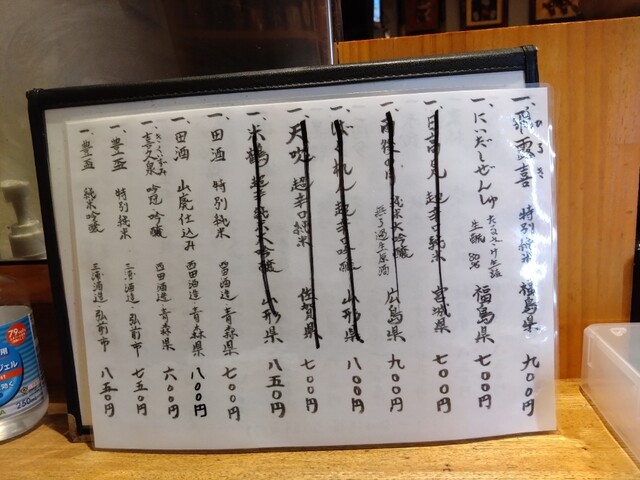 一、飛露喜 特別純米 福島県 九〇〇円
ひろき
一、にいだしぜんしゅ 生酛 80% 福島県 七〇〇円
一、日高見 超辛口純米 宮城県 七〇〇円
一、雨後の月 純米大吟醸 無ろ過生原酒 広島県 九〇〇円
一、ばくれん 超辛口吟醸 山形県 八〇〇円
一、天吹 超辛口純米 佐賀県 七〇〇円
一、米鶴 超辛純米大吟醸 山形県 八五〇円
一、田酒 特別純米 西田酒造・青森県 七〇〇円
一、田酒 山廃仕込み 西田酒造・青森県 八〇〇円
一、喜久泉 吟冠 吟醸 西田酒造・青森県 六〇〇円
きくいずみ
一、豊盃 特別純米 三浦酒造・弘前市 七五〇円
一、豊盃 純米吟醸 三浦酒造・弘前市 八五〇円
79
ジェル